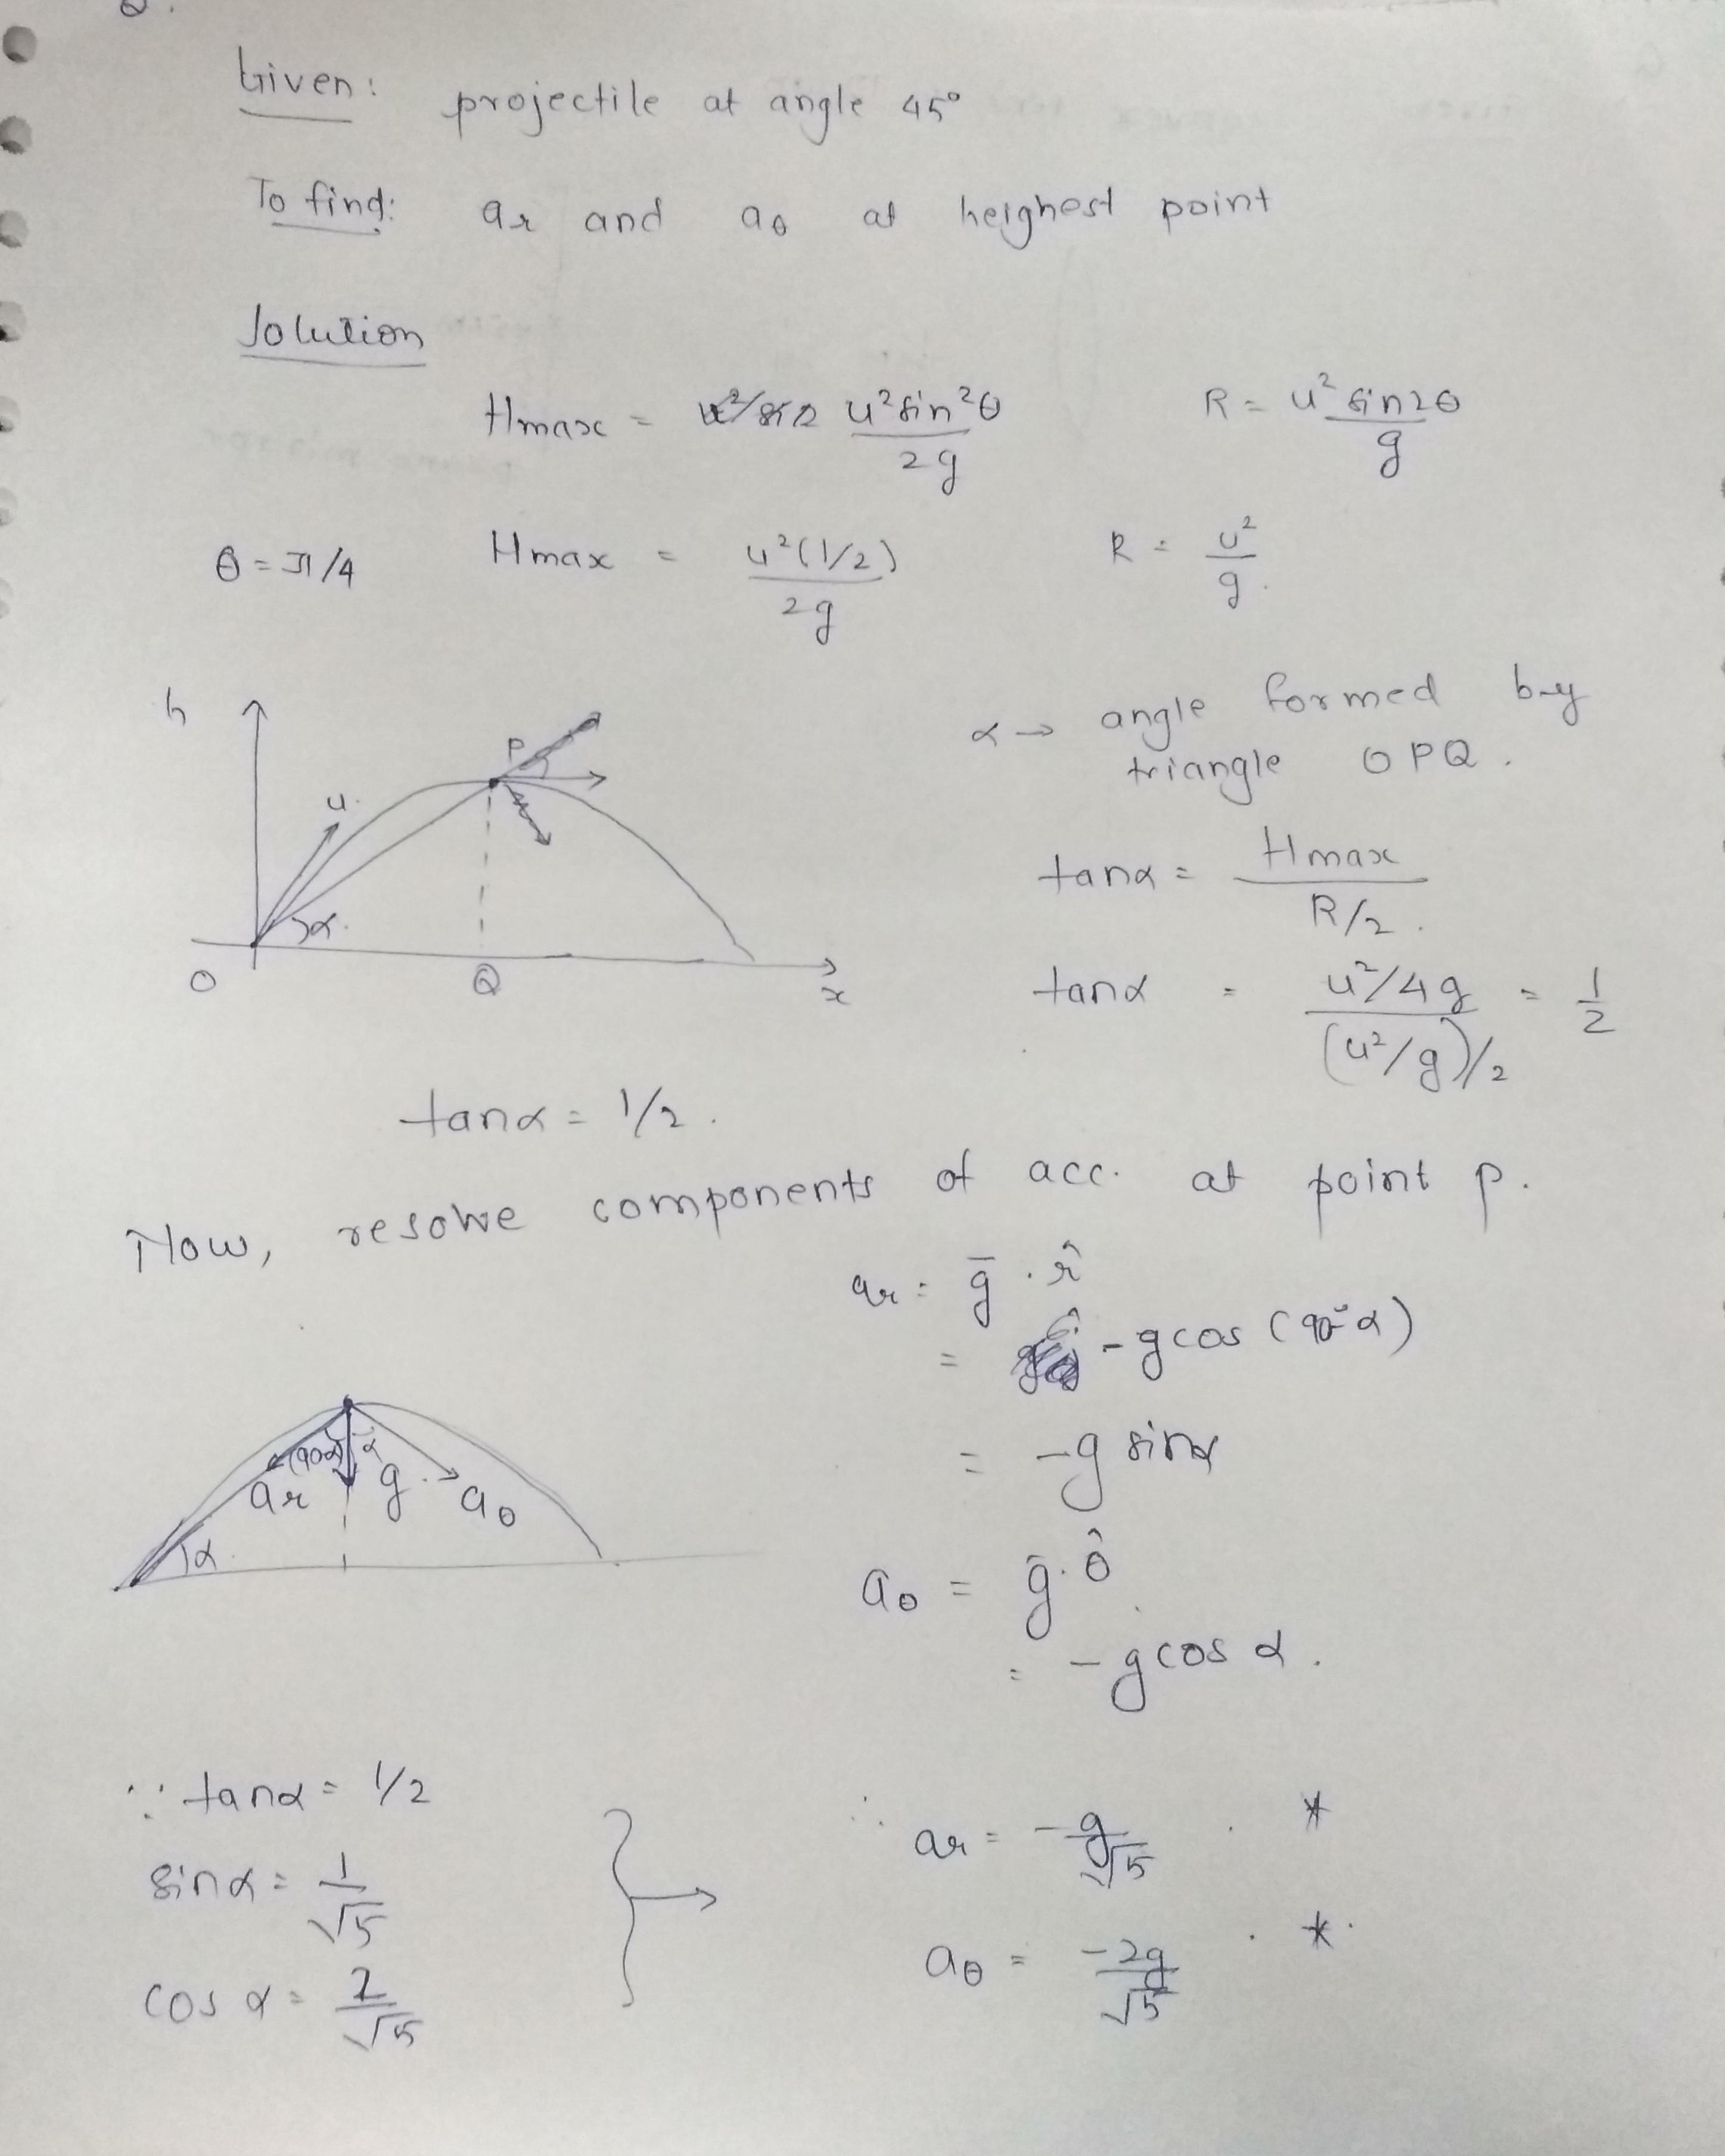 Given: projectile at angle 45°
To find: ar and aθ at heighest point
Solution
Hmax = u²sin²θ/2g R = u² sin2θ/g
θ = π/4 Hmax = u²(1/2)/2g R = u²/g.
h
P
u.
α.
O Q x
α → angle formed by
triangle OPQ.
tanα = Hmax/R/2.
tanα = u²/4g/(u²/g)/2 = 1/2
tanα = 1/2.
Now, resolve components of acc. at point p.
ar = g̅ . r̂
= -gcos (90-α)
= -g sinα
(90-α) α
ar g. aθ
α
aθ = g̅. θ̂
= -gcos α.
∵ tanα = 1/2
sinα = 1/√5
cos α = 2/√5
∴ ar = -g/√5 . *
aθ = -2g/√5 . *.